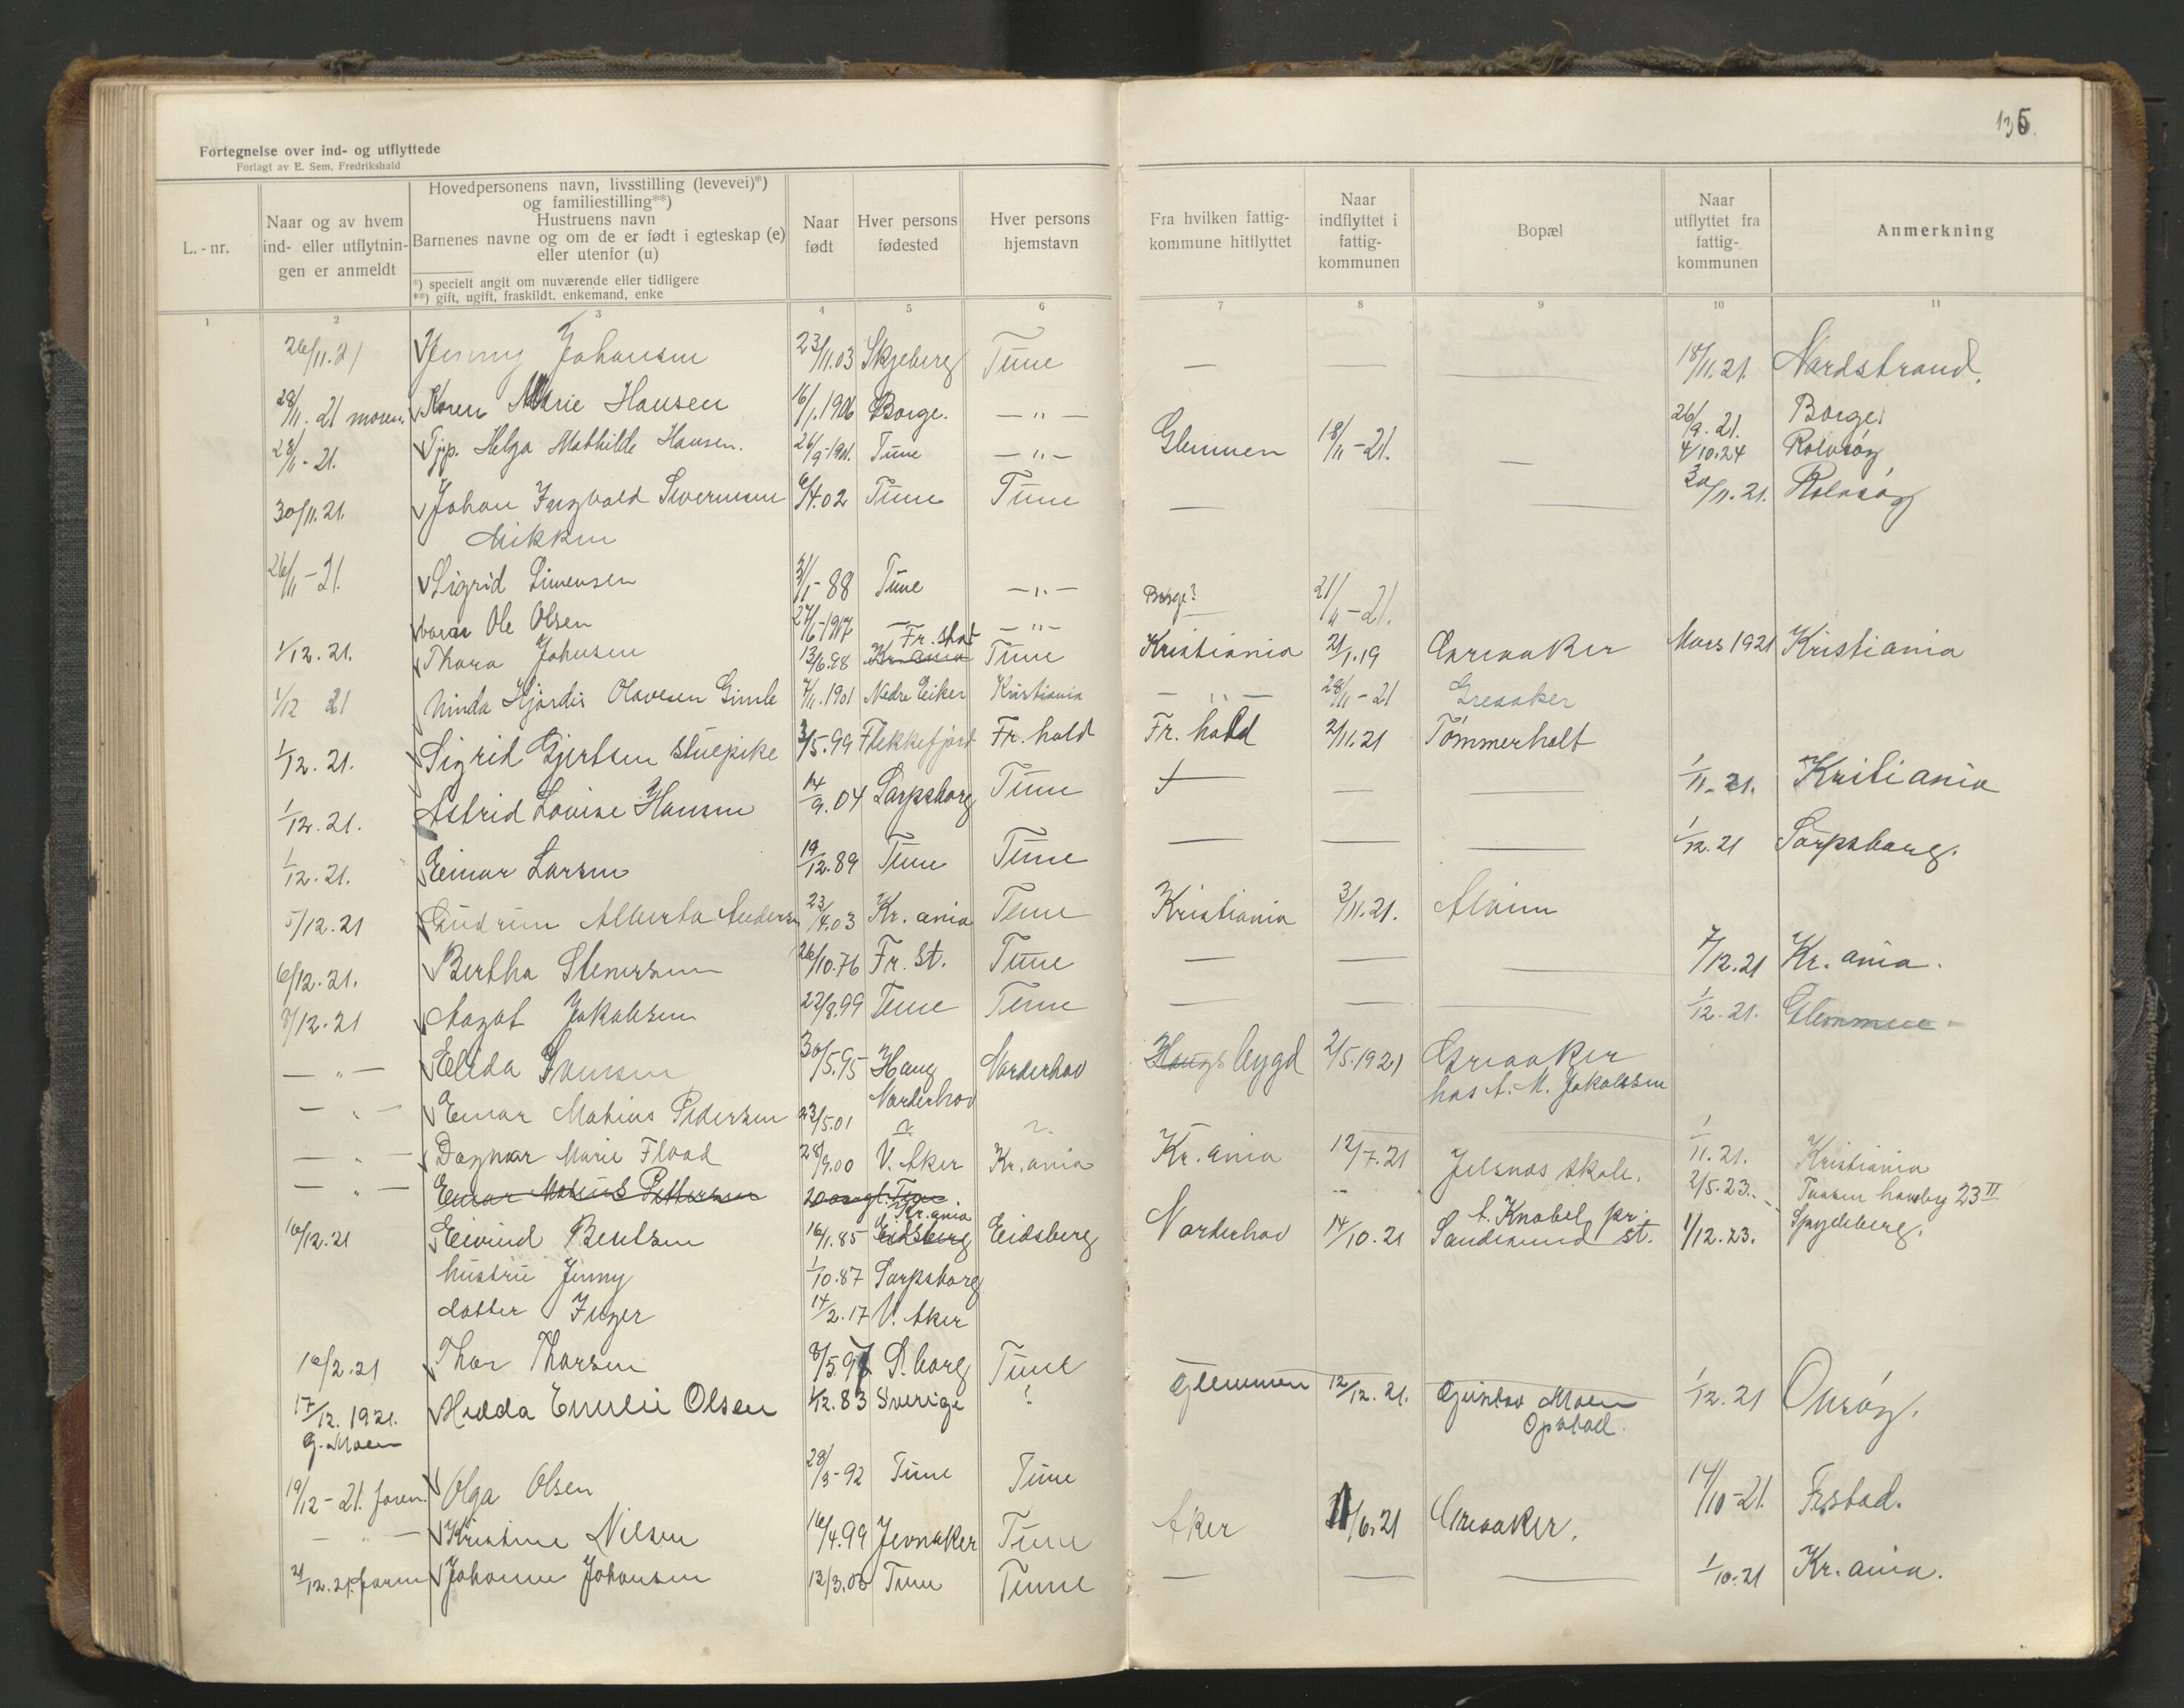 135.
Fortegnelse over ind- og utflyttede
Forlagt av E. Sem, Fredrikshald
L.-nr.
Naar og av hvem ind- eller utflytningen er anmeldt
Hovedpersonens navn, livsstilling (levevei)*)
og familiestilling**)
Hustruens navn
Barnenes navne og om de er født i egteskap (e)
eller utenfor (u)
*) specielt angit om nuværende eller tidligere
**) gift, ugift, fraskildt, enkemand, enke
Naar født
Hver persons fødested
Hver persons hjemstavn
Fra hvilken fattigkommune hitflyttet
Naar indflyttet i fattigkommunen
Bopæl
Naar utflyttet fra fattigkommunen
Anmerkning
1 2 3 4 5 6 7 8 9 10 11
26/11.21 Jenny Johansen 23/11.03 Skjeberg Tune — — — 18/11.21. Nordstrand.
28/11. 21 moren. Karen Marie Hansen 16/1.1906 Borge. —"— 26/9.21. Borge.
28/11-21. Tjp. Helga Mathilde Hansen. 26/9-1901. Tune —"— Glemmen 18/11-21. — 4/10.24 Rolvsöy
30/11.21. Johan Ingvald Svernsen 6/4.02 Tune Tune — — — 30/11.21. Rolvsöy
Mikken
26/11-21. Sigrid Simensen 3/1-88 Tune —"— Borge? 21/11-21.
barn Ole Olsen 27/6-1917 — —"— —
1/12.21. Thora Johnsen 13/6.98 Kr.ania Fr.stad Tune Kristiania 21/1.19 Greaaker Mars 1921 Kristiania
1/12 21 Ninda Hjördis Olavesen Gimle 7/11.1901 Nedre Eiker Kristiania —"— 28/11-21 Greaaker
1/12.21. Sigrid Gjertsen stuepike 3/5.99 Flekkefjord Fr.hald Fr.hald 2/11.21 Tömmerholt
1/12.21. Astrid Lovise Hansen 14/9.04 Sarpsborg Tune — — — 1/11.21. Kristiania
1/12.21. Einar Larsen 19/12.89 Tune Tune — — — 1/12.21 Sarpsborg.
5/12.21 Gudrun Alberta Andersen 23/4.03 Kr.ania Tune Kristiania 3/11.21. Alvim
6/12.21. Bertha Stenersen 26/10.76 Fr.st. Tune — — — 7/12.21 Kr.ania.
8/12.21 Aagot Jakobsen 22/8.99 Tune Tune — — — 1/12.21. Glemmen
—"— Elida Svensen 30/5.95 Haug Norderhov Norderhov Haugsbygd 2/5.1921 Greaaker
hos A. M. Jakobsen
—"— Einar Matius Pedersen 23/5.01 ? ? — 1/11.21. Kristiania
—"— Dagmar Marie Flood 28/9.00 V. Aker Kr.ania Kr.ania 12/7.21 Jelsnes skole. 2/5.23.
—"— Einar Matius Pettersen 20 aar gl. Tune
16/12.21 Eivind Bentsen 16/1.85 Eidsberg Kr.ania Eidsberg Norderhov 14/10.21 A. Knobel pr. Sandesund st. 1/12.23. Spydeberg.
hustru Jenny 1/10.87 Sarpsborg
datter Inger 14/2.17 V. Aker
16/2.21 Thor Thorsen 8/5.97 S.borg Tune — — — 1/12.21 Onsöy.
17/12.1921. Hedda Emelie Olsen 1/12.83 Sverige ? Glemmen 12/12.21. Gustav Moen
G. Moen Opstad.
19/12-21. foren. Olga Olsen 28/3-92 Tune Tune 14/10-21. Fr.stad.
—"— Kristine Nilsen 16/4.99 Jevnaker Tune Aker 11/6.21 Greaaker.
21/12.21. foren Johanne Johansen 12/3.00 Tune Tune — — — 1/10.21 Kr.ania.